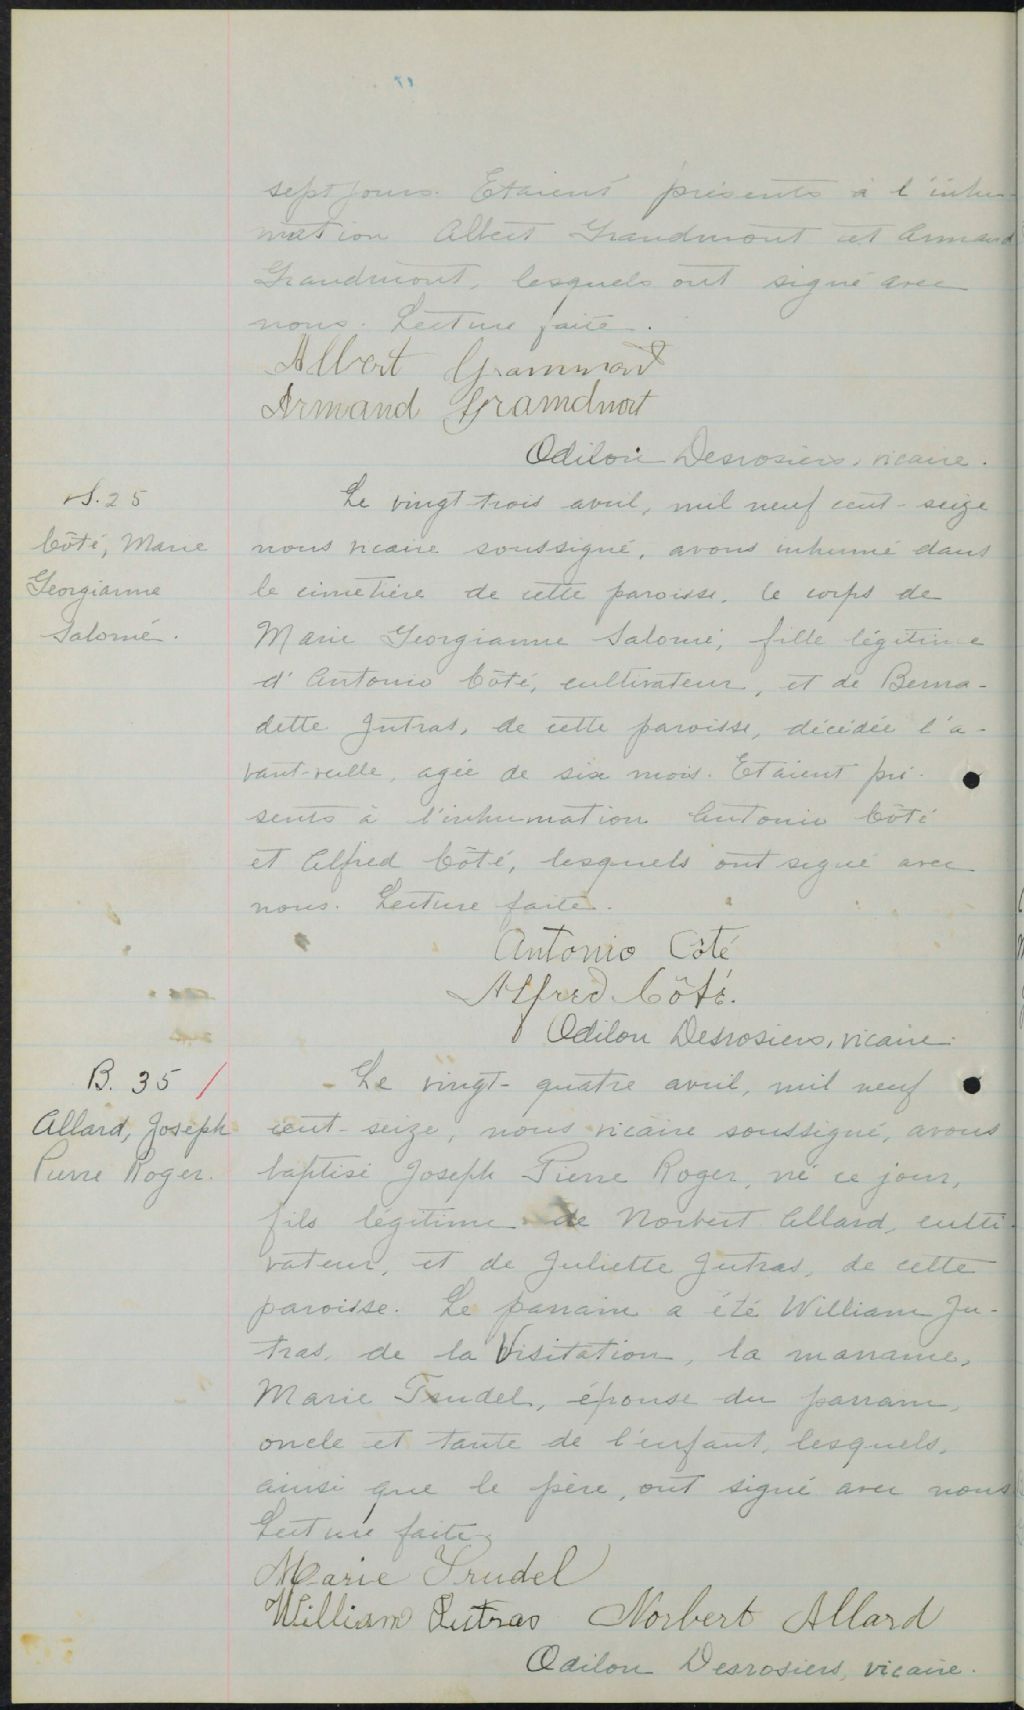 sept jours. Etaient présents à l'inhu-
mation Albert Grandmont et Armand
Grandmont, lesquels ont signé avec
nous. Lecture faite.
Albert Grammont
Armand Gramdmont
Odilon Desrosiers, vicaire.
S. 25
Côté, Marie
Georgianne
Salomé.
Le vingt-trois avril, mil neuf cent-seize
nous vicaire soussigné, avons inhumé dans
le cimetière de cette paroisse, le corps de
Marie Georgianne Salomé, fille légitime
d'Antonio Côté, cultivateur, et de Berna-
dette Jutras, de cette paroisse, décédée l'a-
vant-veille, agée de six mois. Etaient pré-
sents à l'inhumation Antonio Côté
et Alfred Côté, lesquels ont signé avec
nous. Lecture faite.
Antonio Côté
Alfred Côté.
Odilon Desrosiers, vicaire.
B. 35 /
Allard, Joseph
Pierre Roger.
Le vingt-quatre avril, mil neuf
cent-seize, nous vicaire soussigné, avons
baptisé Joseph Pierre Roger, né ce jour,
fils légitime de Norbert Allard, culti-
vateur, et de Juliette Jutras, de cette
paroisse. Le parrain a été William Ju-
tras, de la Visitation, la marraine,
Marie Trudel, épouse du parrain,
oncle et tante de l'enfant, lesquels,
ainsi que le père, ont signé avec nous
Lecture faite.
Marie Trudel
William Jutras Norbert Allard
Odilon Desrosiers, vicaire.